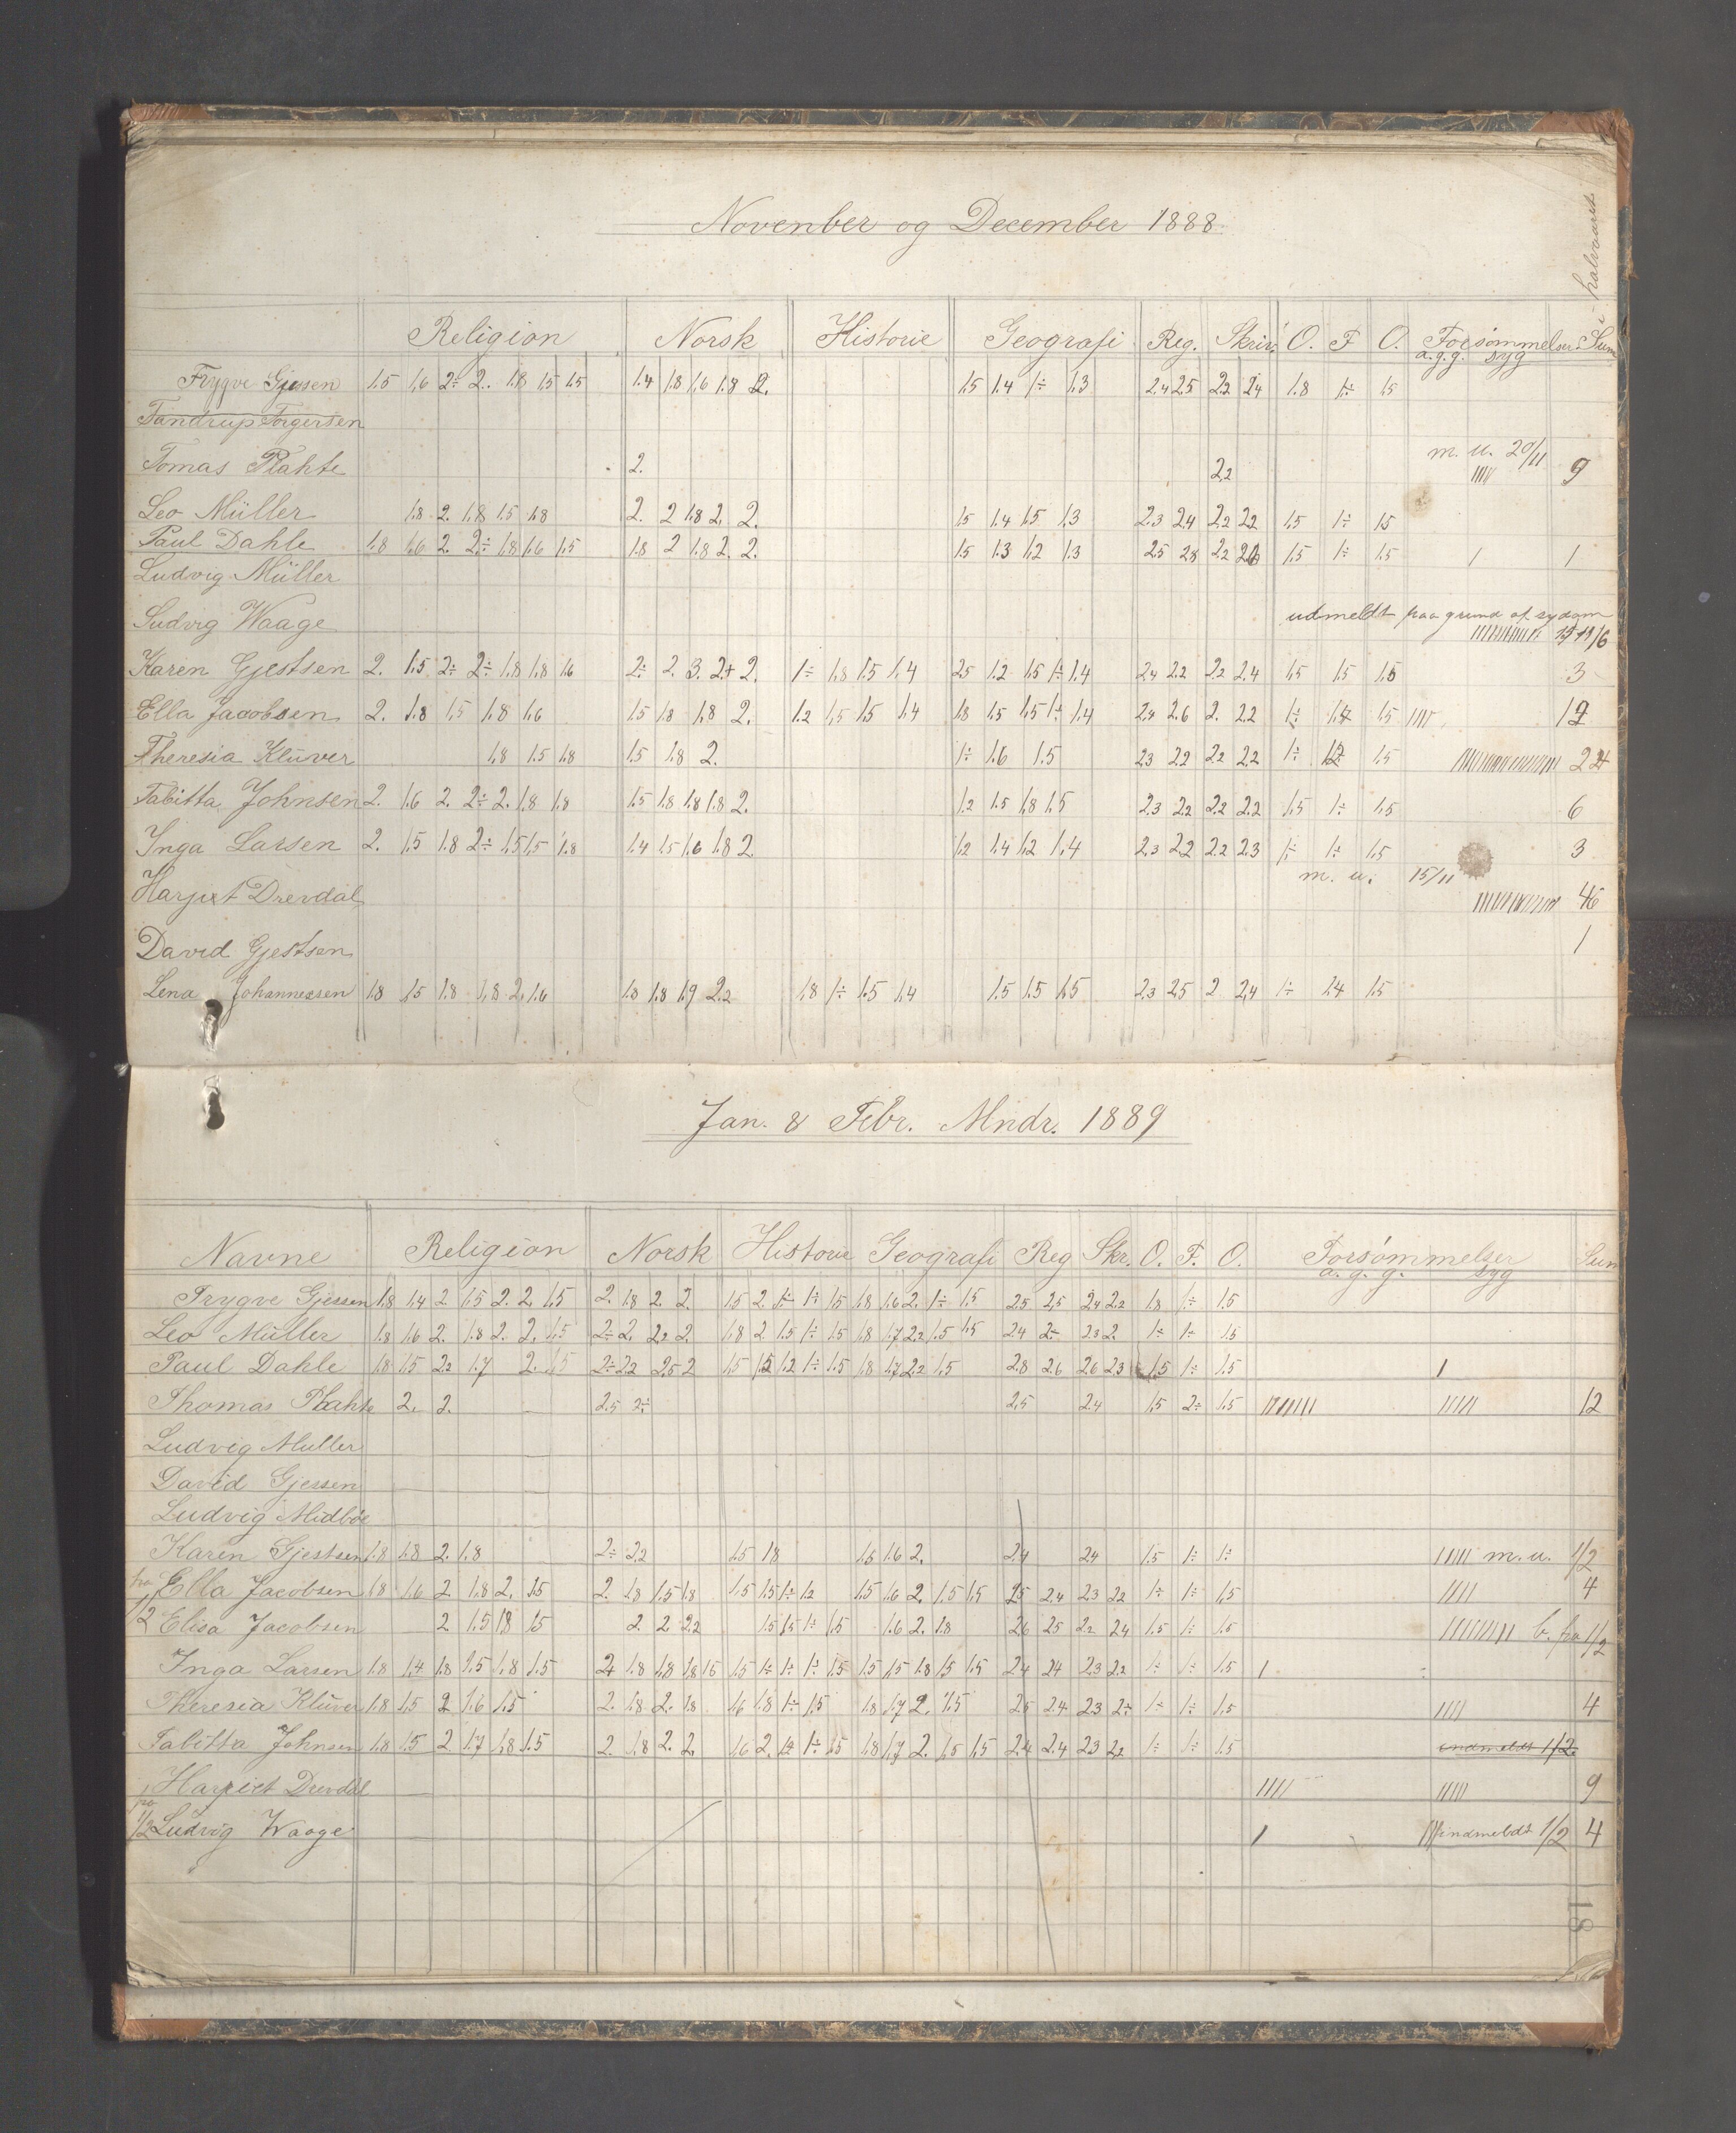 Novenber og December 1888
halvaaret
Religion Norsk Historie Geografi Reg. Skriv. O. F O. Forsömmelser Sum
a.g.g. syg
Trygve Gjessen 1.5 1.6 2÷ 2. 1.8 1.5 1.5 1.4 1.8 1.6 1.8 2. 1.5 1.4 1÷ 1.3 2.4 2.5 2.2 2.4 1.8 1÷ 1.5
Tandrup Torgersen
Tomas Plahte 2. 2.2 m. u. 20/11 9
Leo Müller 1.8 2. 1.8 1.5 1.8 2. 2 1.8 2. 2. 1.5 1.4 1.5 1.3 2.3 2.4 2.2 2.2 1.5 1÷ 1.5
Paul Dahle 1.8 1.6 2. 2÷ 1.8 1.6 1.5 1.8 2 1.8 2. 2. 1.5 1.3 1.2 1.3 2.5 2.8 2.2 2.6 1.5 1÷ 1.5 1 1
Ludvig Müller
Ludvig Waage udmeldt paa grund af sydom
Karen Gjestsen 2. 1.5 2÷ 2÷ 1.8 1.8 1.6 2÷ 2. 3. 2+ 2. 1÷ 1.8 1.5 1.4 2.5 1.2 1.5 1÷ 1.4 2.4 2.2 2.2 2.4 1.5 1.5 1.5 3
Ella Jacobsen 2. 1.8 1.5 1.8 1.6 1.5 1.8 1.8 2. 1.2 1.5 1.5 1.4 1.8 1.5 1.5 1÷ 1.4 2.4 2.6 2. 2.2 1÷ 1.4 1.5 |||| 12
Theresia Klüver 1.8 1.5 1.8 1.5 1.8 2. 1÷ 1.6 1.5 2.3 2.2 2.2 2.2 1÷ 1.2 1.5 24
Tabitta Johnsen 2. 1.6 2. 2÷ 2. 1.8 1.8 1.5 1.8 1.8 1.8 2. 1.2 1.5 1.8 1.5 2.3 2.2 2.2 2.2 1.5 1÷ 1.5 6
Inga Larsen 2. 1.5 1.8 2÷ 1.5 1.5 1.8 1.4 1.5 1.6 1.8 2. 1.2 1.4 1.2 1.4 2.3 2.2 2.2 2.3 1÷ 1÷ 1.5 3
m. u. 15/11
Harjet Drevdal 46
David Gjestsen 1
Lena Johannessen 1.8 1.5 1.8 1.8 2. 1.6 1.8 1.8 1.9 2.2 1.8 1÷ 1.5 1.4 1.5 1.5 1.5 2.3 2.5 2 2.4 1÷ 1.4 1.5
Jan. & Febr. Mndr. 1889
Navne Religion Norsk Historie Geografi Reg Skr. O. F. O. Forsömmelser Sum
a. g. g. syg
Trygve Gjessen 1.8 1.4 2 1.5 2. 2. 1.5 2. 1.8 2. 2. 1.5 2. 1÷ 1÷ 1.5 1.8 1.6 2. 1÷ 1.5 2.5 2.5 2.4 2.2 1.8 1÷ 1.5
Leo Müller 1.8 1.6 2. 1.8 2. 2. 1.5 2÷ 2. 2.2 2. 1.8 2 1.5 1÷ 1.5 1.8 1.7 2.2 1.5 1.5 2.4 2÷ 2.3 2. 1÷ 1÷ 1.5
Paul Dahle 1.8 1.5 2.2 1.7 2. 1.5 2÷ 2.2 2.5 2 1.5 1.5 1.2 1÷ 1.5 1.8 1.7 2.2 1.5 2.8 2.6 2.6 2.3 1.5 1÷ 1.5 1
Thomas Plahte 2. 2. 2.5 2÷ 2.5 2.4 1.5 2÷ 1.5 ||||||| ||||| 12
Ludvig Muller
David Gjessen
Ludvig Midböe
Karen Gjestsen 1.8 1.8 2. 1.8 2÷ 2.2 1.5 1.8 1.5 1.6 2. 2.4 2.4 1.5 1÷ 1÷ ||||| m.u. 1/2
Ella Jacobsen 1.8 1.6 2 1.8 2. 1.5 2. 1.8 1.5 1.8 1.5 1.5 1÷ 1.2 1.5 1.6 2. 1.5 1.5 2.5 2.4 2.3 2.2 1÷ 1÷ 1.5 |||| 4
fra 1/2 Elisa Jacobsen 2. 1.5 1.8 1.5 2. 2. 2.2 1.5 1.5 1÷ 1.5 1.6 2. 1.8 2.6 2.5 2.2 2.4 1.5 1÷ 1.5 b. fra 1/2
Inga Larsen 1.8 1.4 1.8 1.5 1.8 1.5 2+ 1.8 1.8 1.8 1.5 1.5 1÷ 1÷ 1÷ 1.5 1.5 1.5 1.8 1.5 1.5 2.4 2.4 2.3 2.2 1÷ 1÷ 1.5 1
Theresia Klüver 1.8 1.5 2 1.6 1.5 2. 1.8 2. 1.8 1.6 1.8 1÷ 1.5 1.8 1.7 2. 1.5 2.5 2.4 2.3 2÷ 1÷ 1÷ 1.5 |||| 4
Tabitta Johnsen 1.8 1.5 2 1.7 1.8 1.5 2. 1.8 2. 2. 1.6 2. 1.2 1÷ 1.5 1.8 1.7 2. 1.5 1.5 2.4 2.4 2.3 2.2 1÷ 1÷ 1.5 indmeldt 1/2
Harriet Drevdal |||| ||||| 9
fra 1/2 Ludvig Waage 1 ||| indmeldt 1/2 4
18